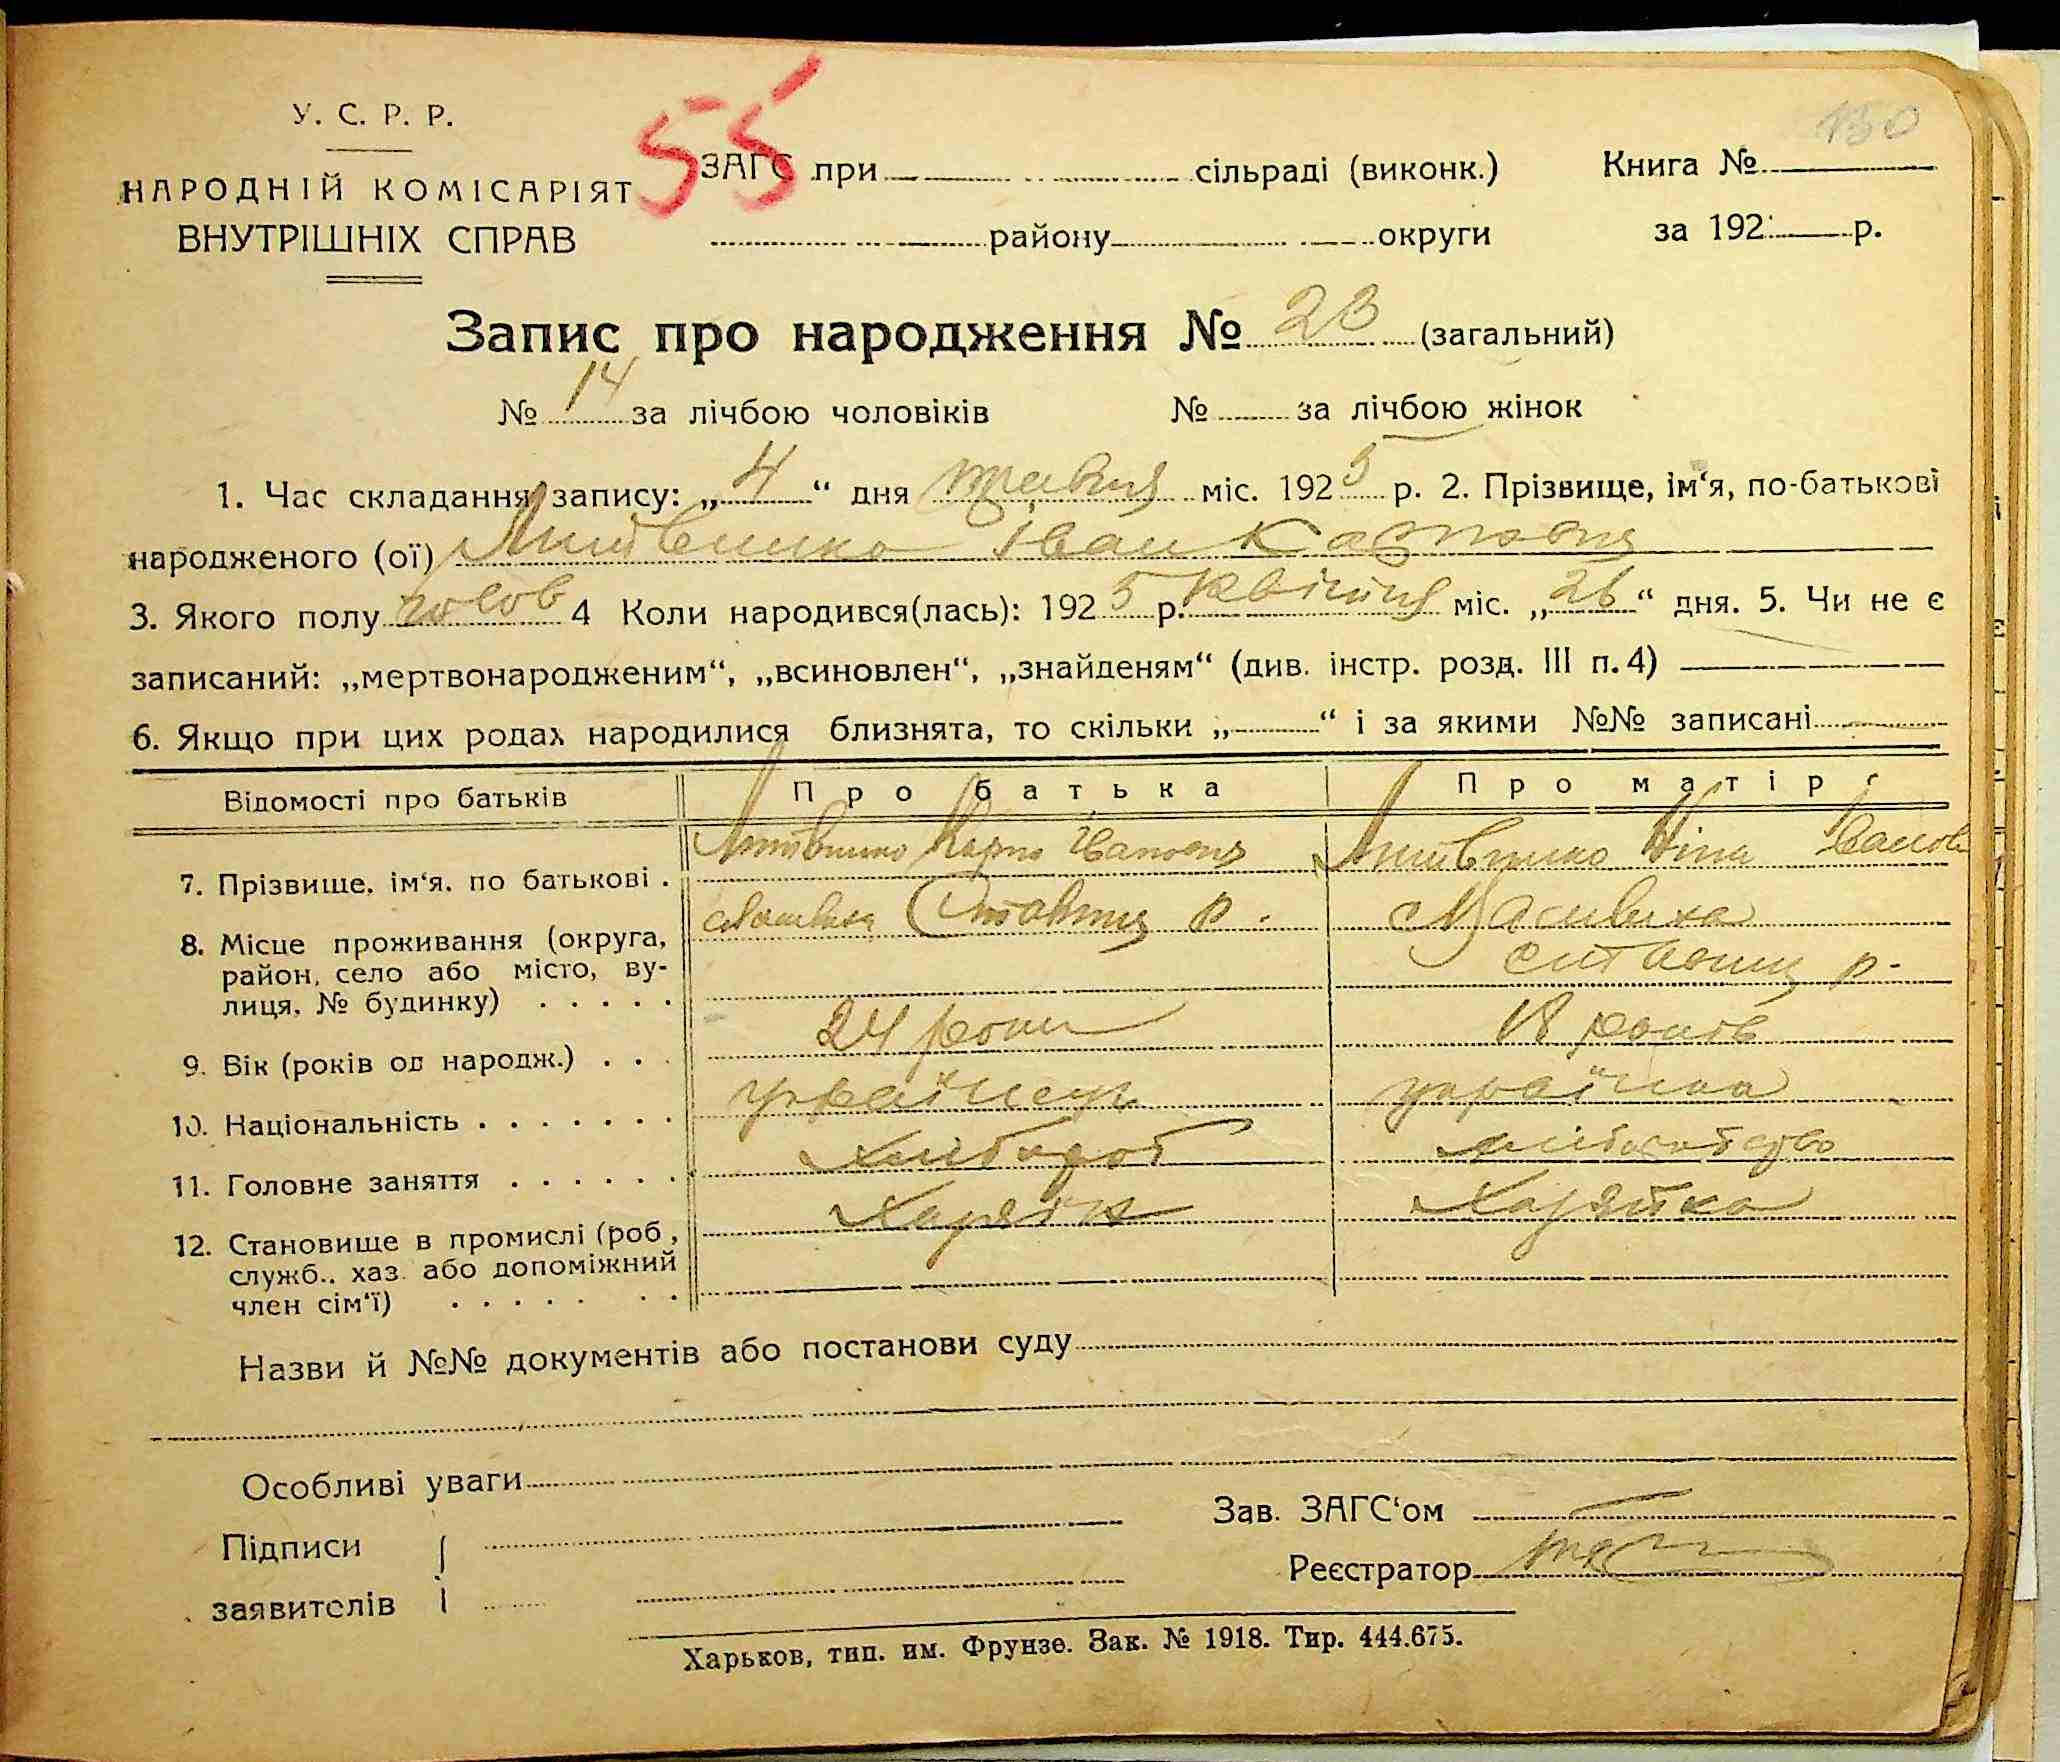 130
У. С. Р. Р.
НАРОДНІЙ КОМІСАРІЯТ
ВНУТРІШНІХ СПРАВ
55
ЗАГС при сільраді (виконк.) Книга №
району округи за 192 р.
Запис про народження № 23 (загальний)
№ 14 за лічбою чоловіків № за лічбою жінок
1. Час складання запису: „4“ дня травня міс. 1925 р. 2. Прізвище, ім‘я, по-батькові
народженого (ої) Литвинко Іван Карпович
3. Якого полу чолов 4 Коли народився(лась): 1925 р. квітня міс. „26“ дня. 5. Чи не є
записаний: „мертвонародженим“, „всиновлен“, „знайденям“ (див. інстр. розд. III п. 4)
6. Якщо при цих родах народилися близнята, то скільки „ “ і за якими №№ записані
Відомості про батьків Про батька Про матір
7. Прізвище, ім‘я, по батькові . Литвинко Карпо Іванович Литвинко Ніна Іванов
8. Місце проживання (округа, район, село або місто, вулиця, № будинку) . . . . . Ставищ р. Ставищ р.
9. Вік (років од народж.) . . . 24 роки 18 років
10. Національність . . . . . . . українец українка
11. Головне заняття . . . . . . хлібороб хліборобство
12. Становище в промислі (роб., служб., хаз. або допоміжний член сім‘ї) . . . . . . . Хазяїн Хазяйка
Назви й №№ документів або постанови суду
Особливі уваги
Підписи заявителів
Зав. ЗАГС‘ом
Реєстратор
Харьков, тип. им. Фрунзе. Зак. № 1918. Тир. 444.675.